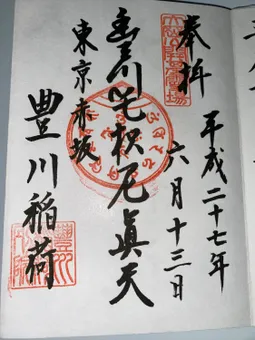 奉拝
平成二十七年
六月十三日
豊川吒枳尼眞天
東京赤坂
豊川稲荷